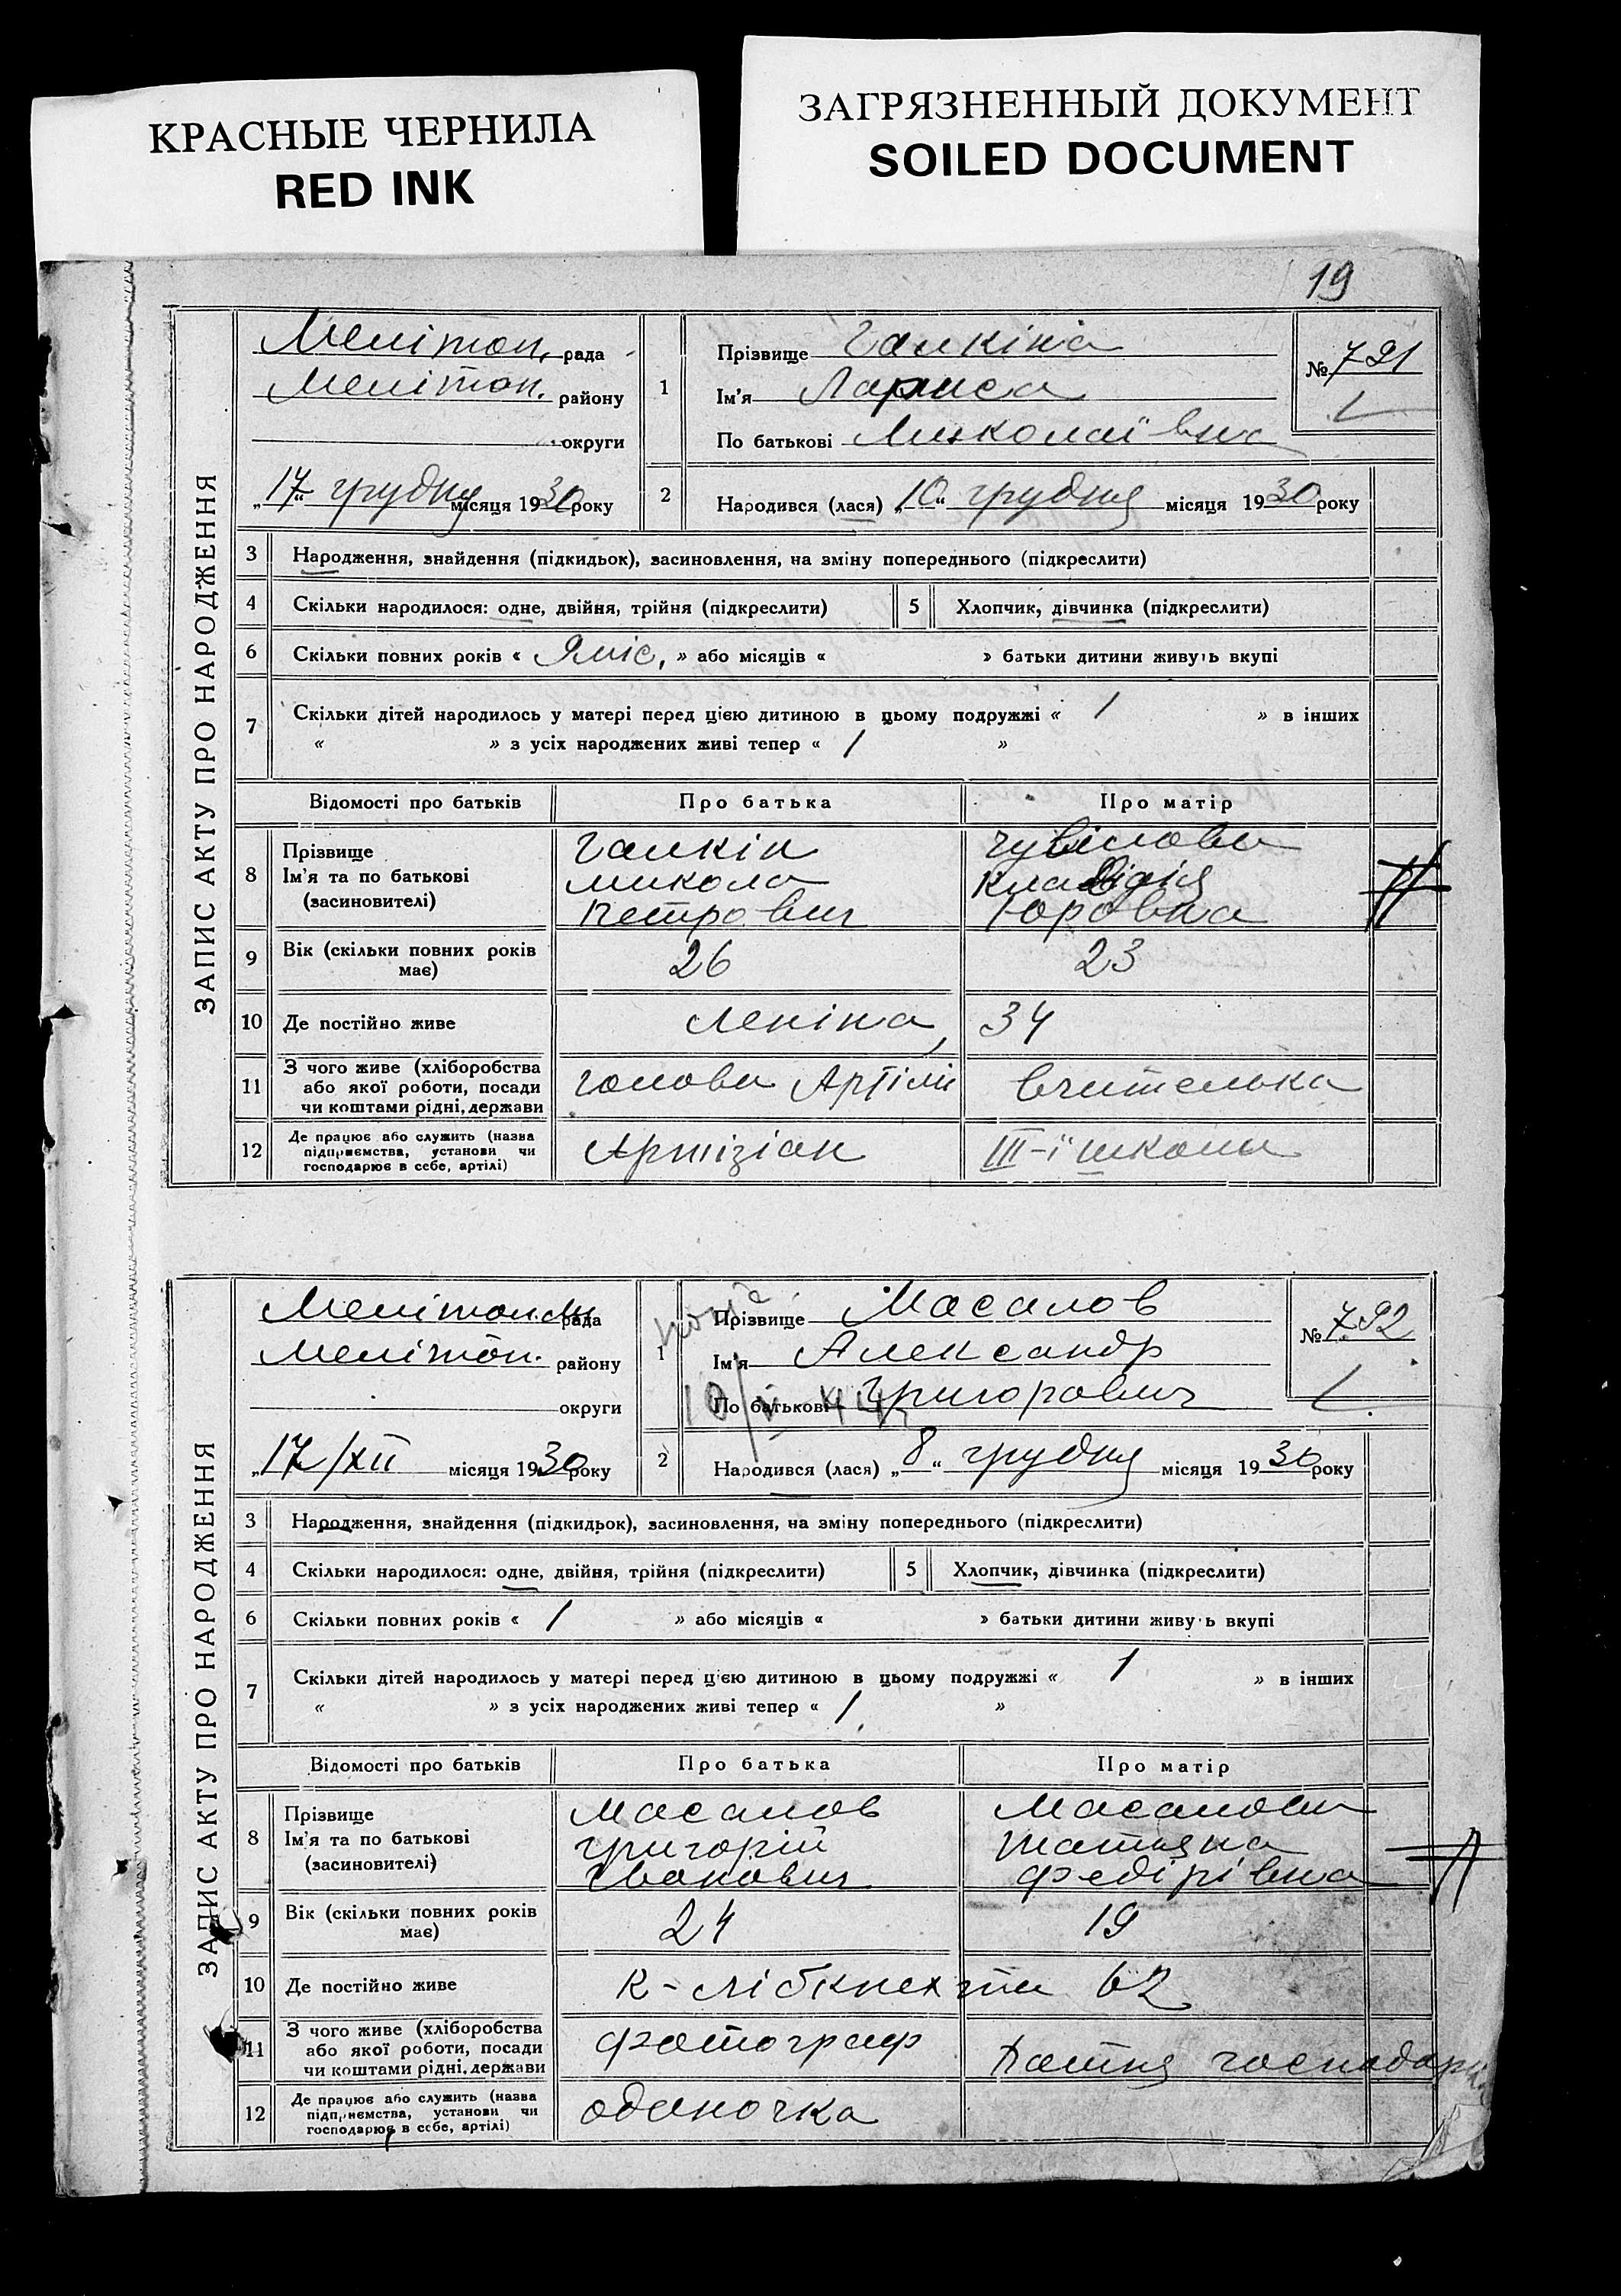 КРАСНЫЕ ЧЕРНИЛА
RED INK
ЗАГРЯЗНЕННЫЙ ДОКУМЕНТ
SOILED DOCUMENT
19
ЗАПИС АКТУ ПРО НАРОДЖЕННЯ
Мелітоп. рада
Мелітоп. району
округи
„17“ грудня місяця 1930 року
1
Прізвище Галкіна
Ім'я Лариса
По батькові Миколаївна
№ 791
2
Народився (лася) „10“ грудня місяця 1930 року
3 Народження, знайдення (підкидьок), засиновлення, на зміну попереднього (підкреслити)
4 Скільки народилося: одне, двійня, трійня (підкреслити) 5 Хлопчик, дівчинка (підкреслити)
6 Скільки повних років « 9 міс. » або місяців « » батьки дитини живуть вкупі
7 Скільки дітей народилось у матері перед цією дитиною в цьому подружжі « 1 » в інших
« » з усіх народжених живі тепер « 1 »
Відомості про батьків Про батька Про матір
8 Прізвище
Ім'я та по батькові
(засиновителі)
Галкін
Микола
Петрович
Клавдія
Юровна
9 Вік (скільки повних років має) 26 23
10 Де постійно живе Леніна, 34
11 З чого живе (хліборобства
або якої роботи, посади
чи коштами рідні, держави
голова Артілі вчителька
12 Де працює або служить (назва
підприємства, установи чи
господарює в себе, артілі)
Артізіан III-ї школи
ЗАПИС АКТУ ПРО НАРОДЖЕННЯ
Мелітоп. рада
Мелітоп. району
округи
„17/XII місяця 1930 року
1
Прізвище Масалов
Ім'я Александр
По батькові Григорович
№ 792
2
Народився (лася) „8“ грудня місяця 1930 року
3 Народження, знайдення (підкидьок), засиновлення, на зміну попереднього (підкреслити)
4 Скільки народилося: одне, двійня, трійня (підкреслити) 5 Хлопчик, дівчинка (підкреслити)
6 Скільки повних років « 1 » або місяців « » батьки дитини живуть вкупі
7 Скільки дітей народилось у матері перед цією дитиною в цьому подружжі « 1 » в інших
« » з усіх народжених живі тепер « 1 »
Відомості про батьків Про батька Про матір
8 Прізвище
Ім'я та по батькові
(засиновителі)
Масалов
Григорій
Іванович
Масалова
Татьяна
Федірівна
9 Вік (скільки повних років має) 24 19
10 Де постійно живе К-Лібкнехта 62
11 З чого живе (хліборобства
або якої роботи, посади
чи коштами рідні, держави
фотограф Хатня господарка
12 Де працює або служить (назва
підприємства, установи чи
господарює в себе, артілі)
одиночка